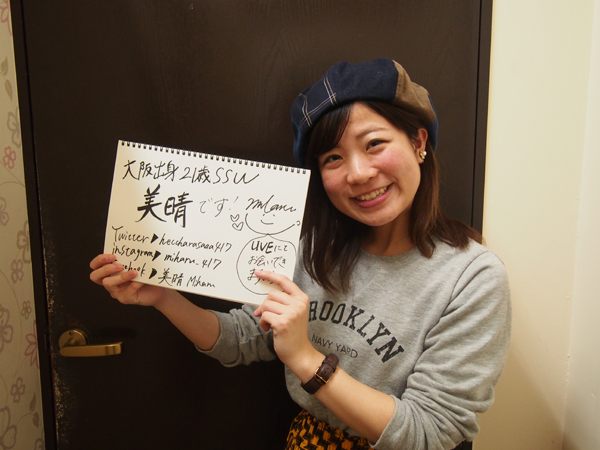 大阪出身21歳SSW
美晴です!
Twitter▶heccharasaaa417
instagram▶miharu_417
▶美晴 Miharu
LIVEにて
お会いでき
BROOKLYN
NAVY YARD